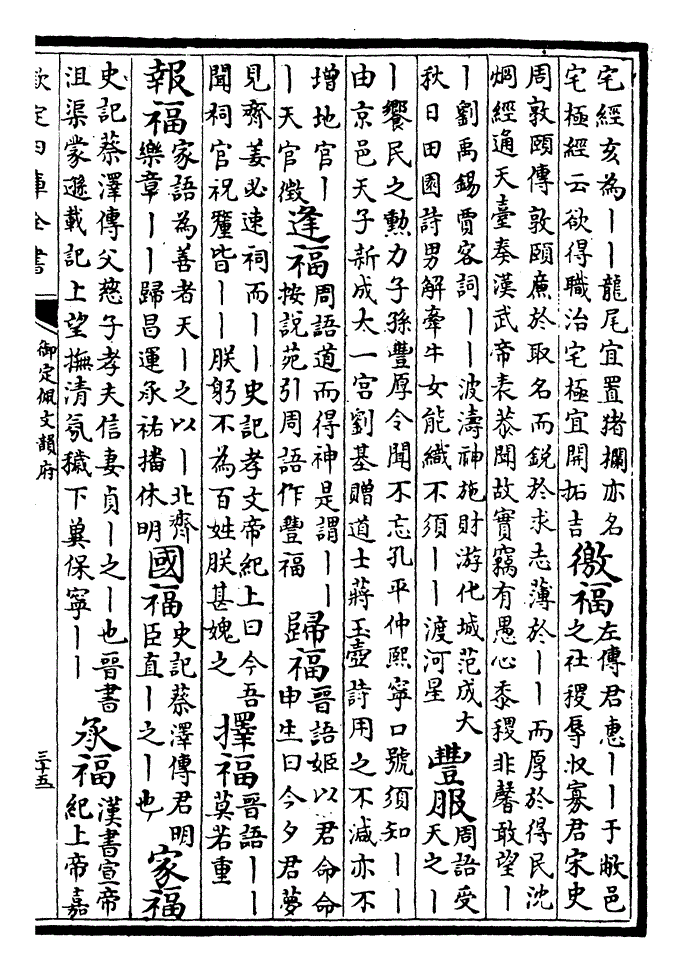 宅經亥為〡〡龍尾宜置猪欄亦名
宅極經云欲得職治宅極宜開拓吉
徼福
左傳君惠〡〡于敝邑
之社稷辱收寡君宋史
周敦頤傳敦頤廉於取名而銳於求志薄於〡〡而厚於得民沈
烱經通天臺奏漢武帝表恭聞故實竊有愚心黍稷非馨敢望〡
〡劉禹錫賈客詞〡〡波濤神施財游化城范成大
秋日田園詩男解牽牛女能織不須〡〡渡河星
豐服
周語受
天之〡
〡饗民之勲力子孫豐厚令聞不忘孔平仲熙寧口號須知〡〡
由京邑天子新成太一宫劉基贈道士蔣玉壺詩用之不減亦不
增地官〡
〡天官徵
逢福
周語道而得神是謂〡〡
按說苑引周語作豐福
歸福
晉語姬以君命命
申生曰今夕君夢
見齊姜必速祠而〡〡史記孝文帝紀上曰今吾
聞祠官祝釐皆〡〡朕躬不為百姓朕甚媿之
擇福
晉語〡〡
莫若重
報福
家語為善者天〡之以〡北齊
樂章〡〡歸昌運承祐播休明
國福
史記蔡澤傳君明
臣直〡之〡也
家福
史記蔡澤傳父慈子孝夫信妻貞〡之〡也晉書
沮渠蒙遜載記上望撫清氛穢下冀保寧〡〡
承福
漢書宣帝
紀上帝嘉
欽定四庫全書
御定佩文韻府
三十五